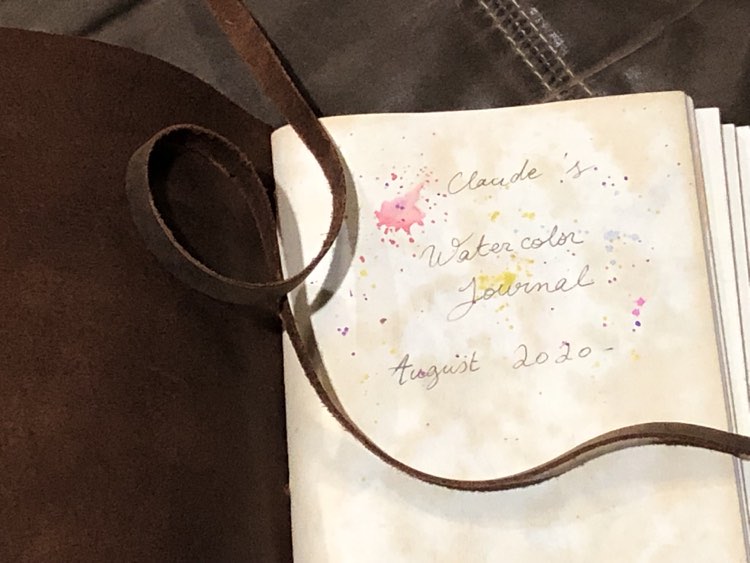 Claude's
Watercolor
Journal
August 2020-